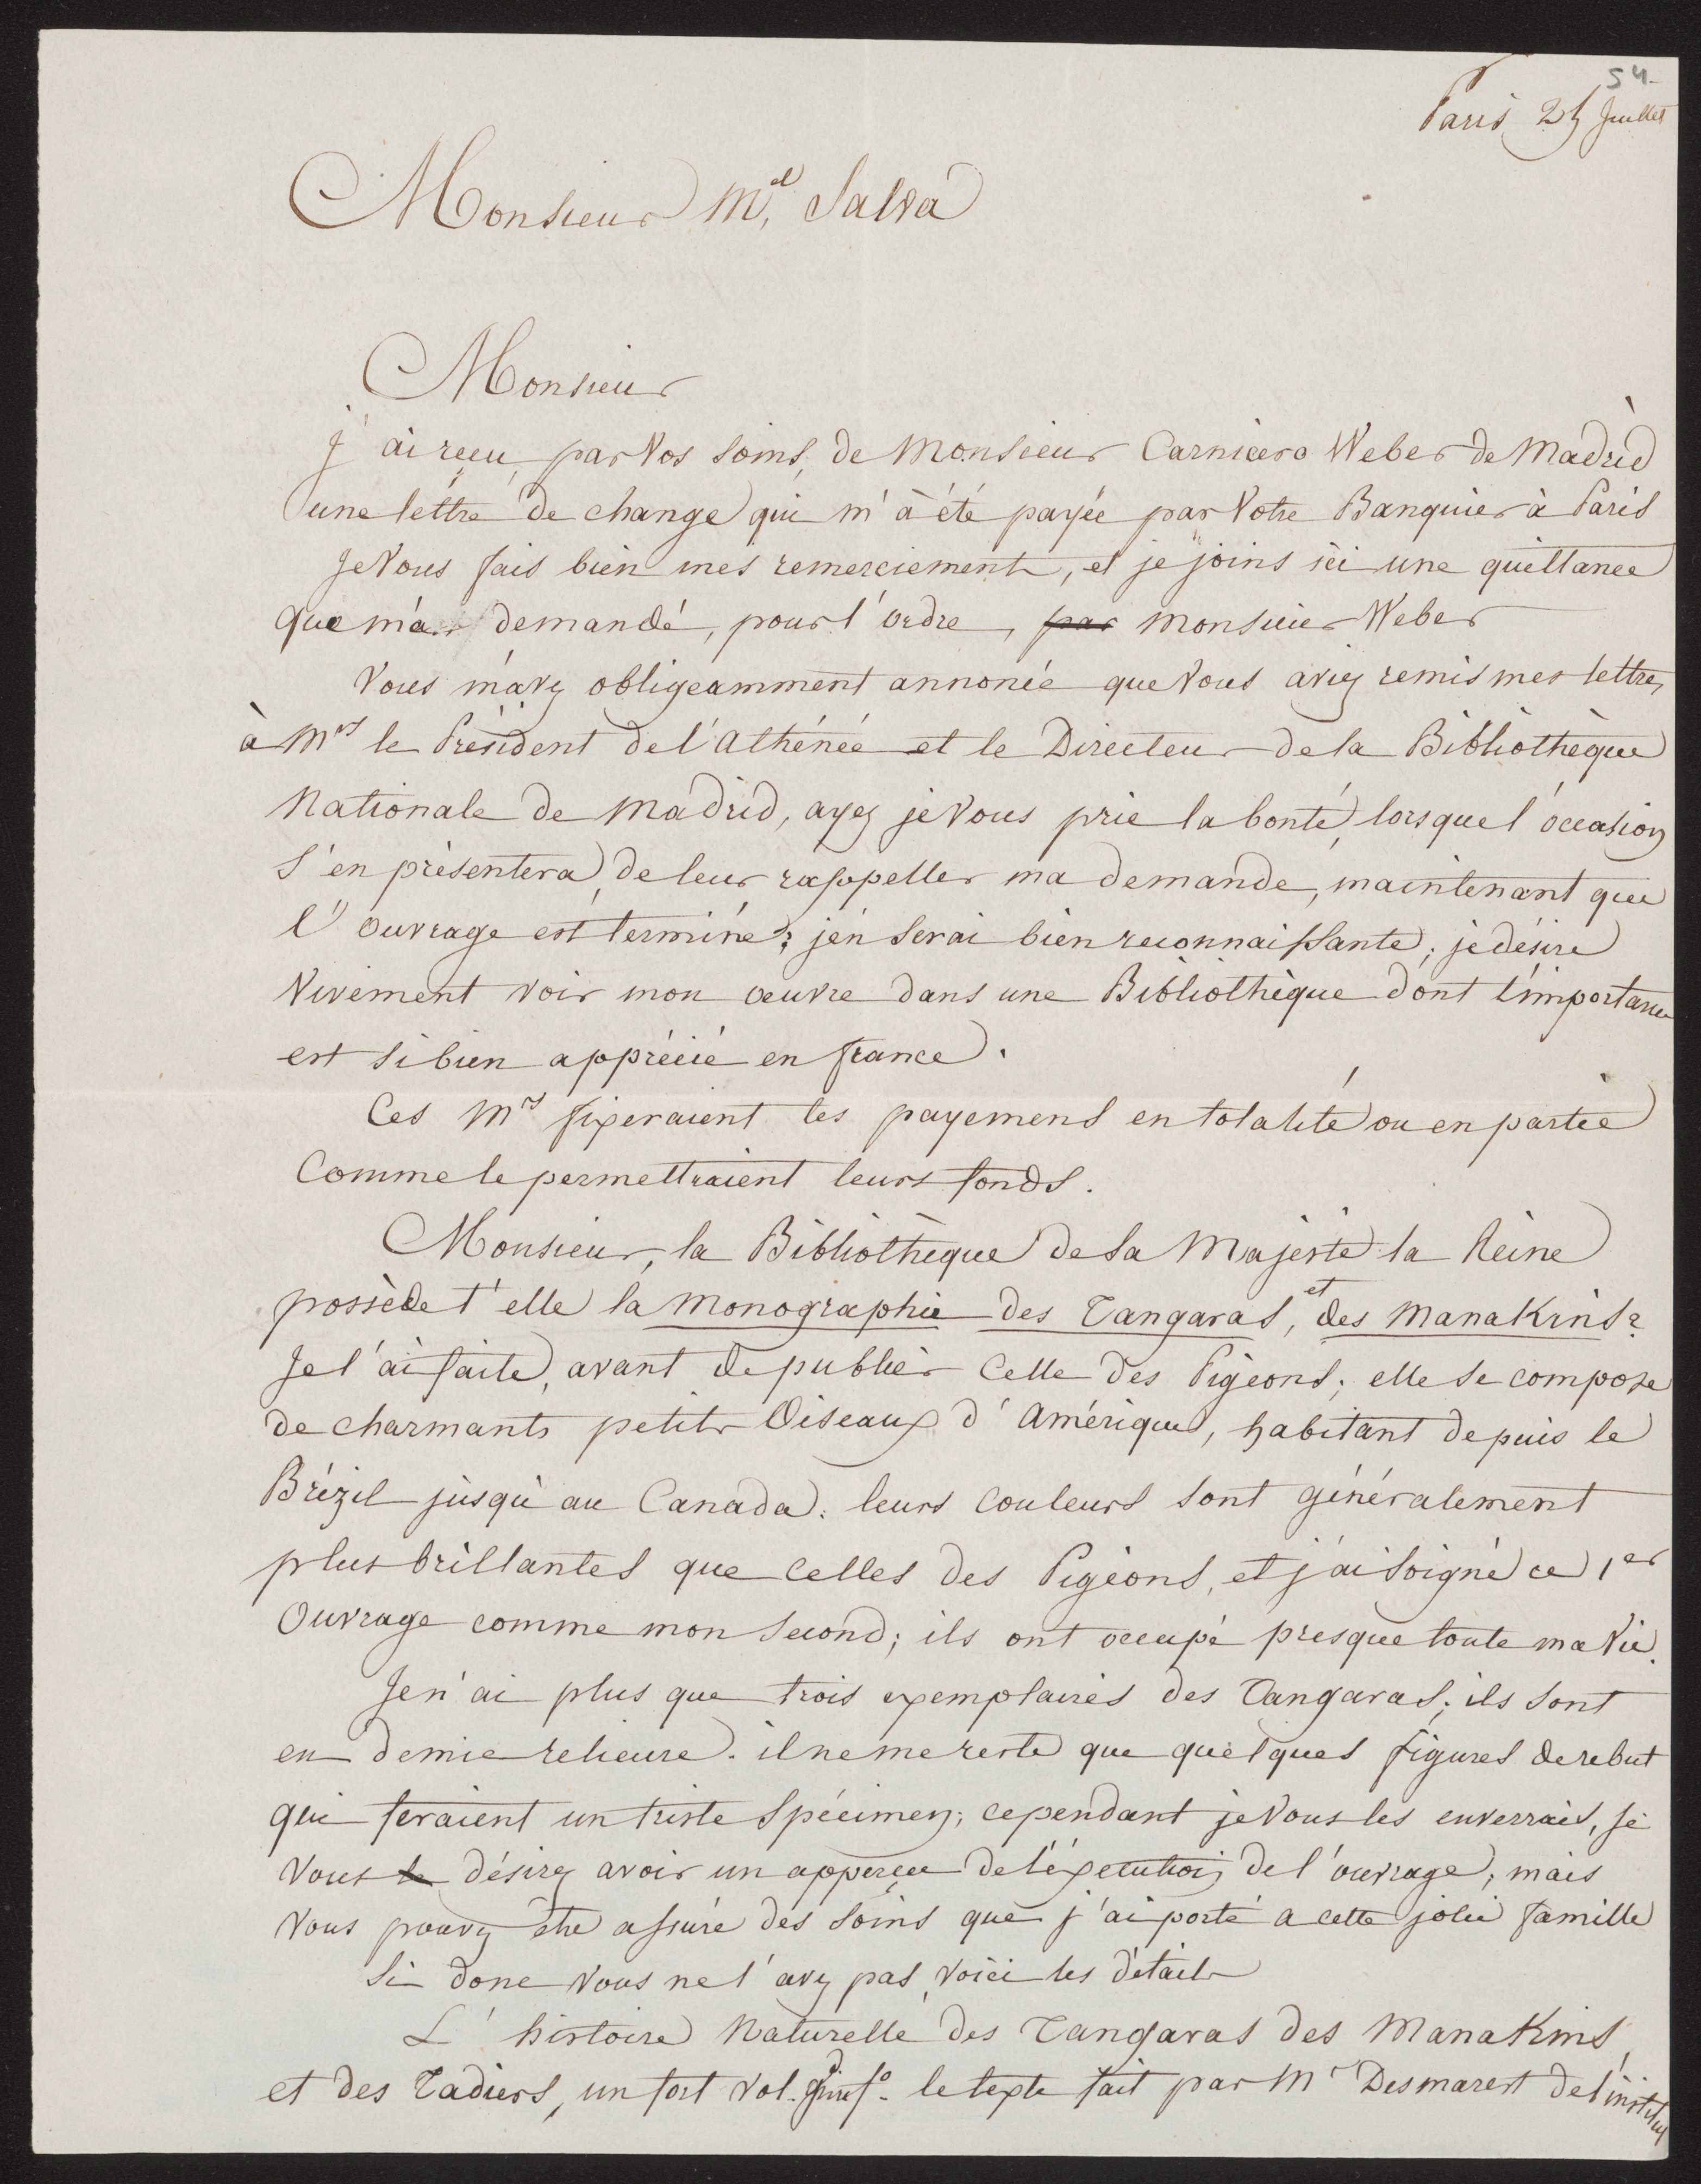 54
Paris 25 Juillet
Monsieur M.el Salvá
Monsieur
j'ai reçu, par vos soins, de Monsieur Carnicero Weber de Madrid
une lettre de change qui m'à été payée par Votre Banquier à Paris
Je Vous fais bien mes remerciements, et je joins ici une quittance
que m'a demandé, pour l'ordre, par Monsieur Weber
Vous m'avez obligeamment annoncé que Vous aviez remis mes lettres
à Mrs le Président de l'Athénée et le Directeur de la Bibliothèque
Nationale de Madrid, ayez je Vous prie la bonté, lorsque l'occasion
s'en présentera, de leur rappeller ma demande, maintenant que
l'ouvrage est terminé; j'en serai bien reconnaissante; je désire
Vivement voir mon œuvre dans une Bibliothèque dont l'importance
est si bien apprécié en france.
Ces Mrs fixeraient les payemens en totalité ou en partie
Comme le permettraient leurs fonds.
Monsieur, la Bibliothèque de sa Majesté la Reine
possède t'elle la Monographie des Tangaras, et des Manakins?
Je l'ai faite, avant de publier Celle des Pigeons; elle se compose
de charmants petits Oiseaux d'Amérique, habitant depuis le
Brézil jusqu'au Canada: leurs couleurs sont généralement
plus brillantes que celles des Pigeons, et j'ai soigné ce 1er
Ouvrage comme mon second; ils ont occupé presque toute ma Vie.
Je n'ai plus que trois exemplaires des Tangaras; ils sont
en demie relieure. il ne me reste que quelques figures de rebut
qui feraient un triste Spécimen; cependant je Vous les enverrais, si
Vous le désirez avoir un apperçu de l'éxecution de l'ouvrage; mais
Vous pouvez être assuré des soins que j'ai porté a cette jolie famille
Si donc Vous ne l'avez pas, voici les détails
L'histoire Naturelle des Tangaras des Manakins,
et des Tadiers, un fort vol. fo. le texte fait par Mr Desmarest de l'institut